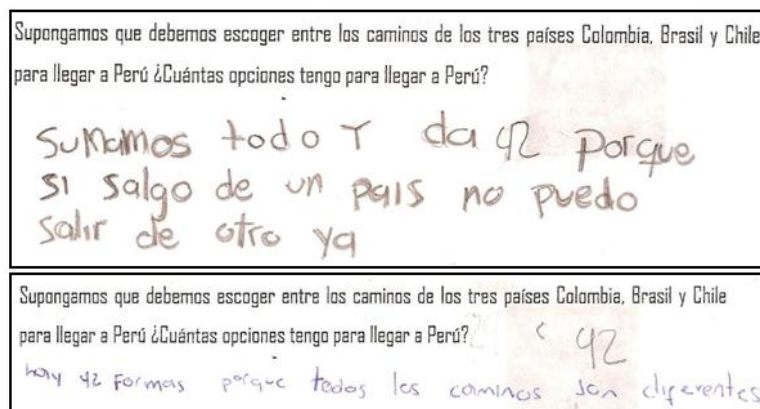 Supongamos que debemos escoger entre los caminos de los tres países Colombia, Brasil y Chile
para llegar a Perú ¿Cuántas opciones tengo para llegar a Perú?
Sumamos todo Y da 42 Porque
si salgo de un pais no puedo
salir de otro ya
Supongamos que debemos escoger entre los caminos de los tres países Colombia, Brasil y Chile
para llegar a Perú ¿Cuántas opciones tengo para llegar a Perú?
42
hay 42 Formas porque todos los caminos son diferentes